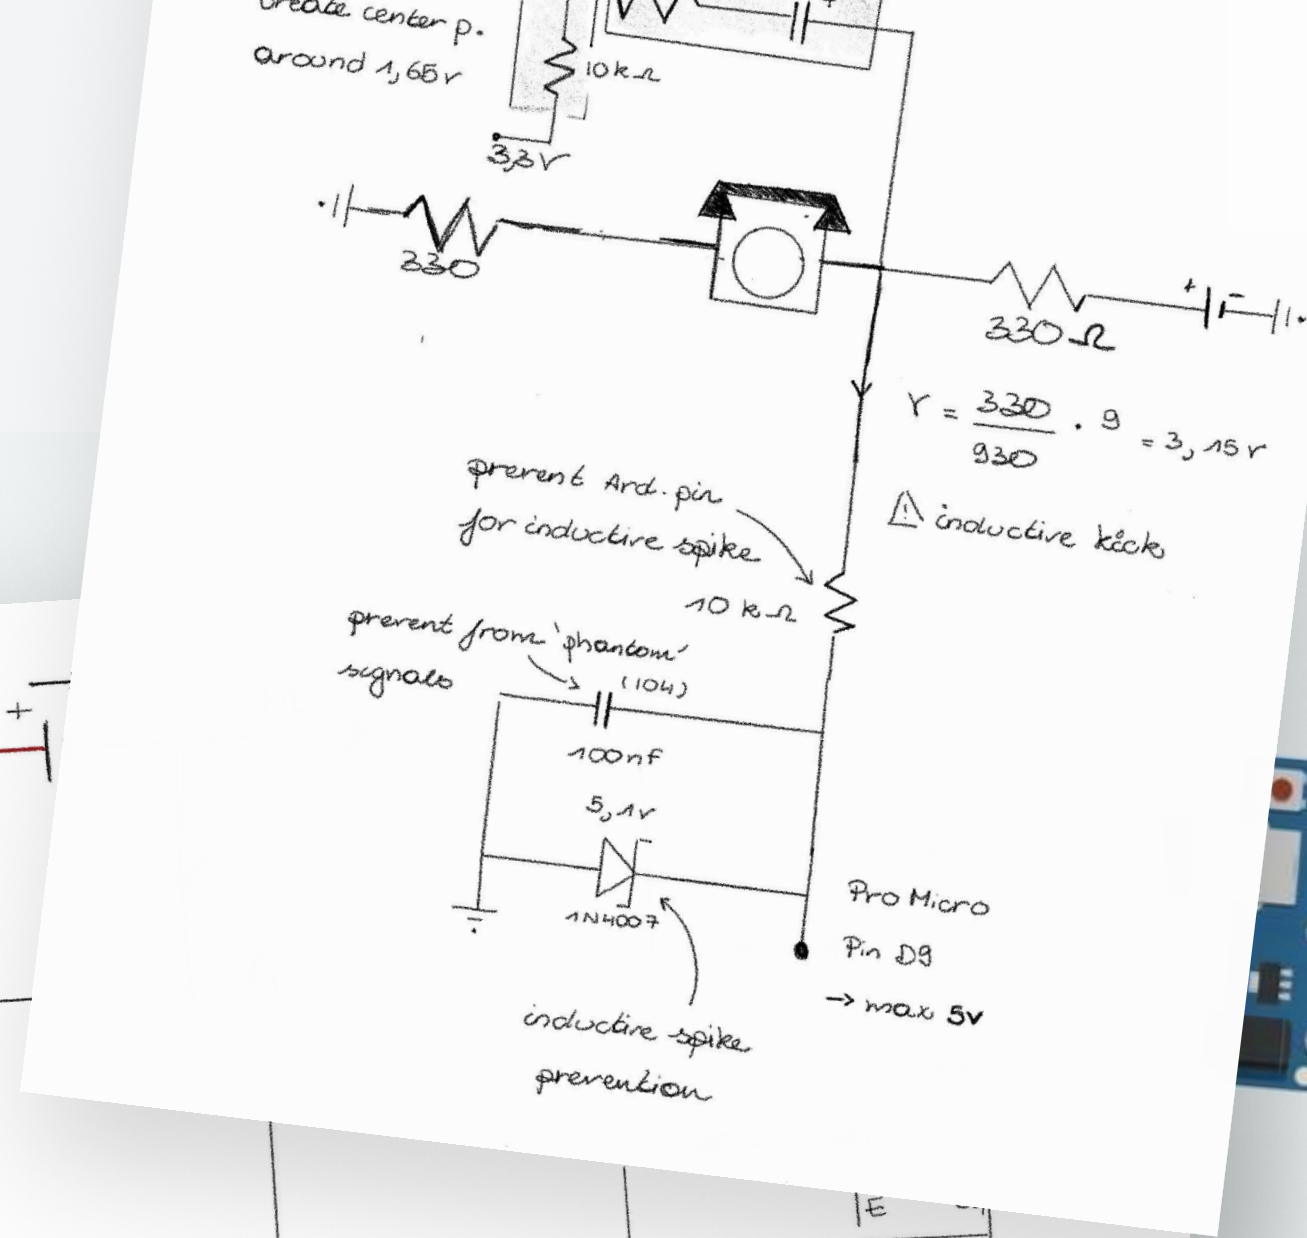 create center p.
around 1,65v
10kΩ
3,3v
330
+ -
330Ω
V = 330/930 · 9 = 3,15v
⚠ inductive kick
prevent Ard. pin
for inductive spike
10 kΩ
prevent from 'phantom'
signals
(104)
100nf
5,1v
1N4007
inductive spike
prevention
Pro Micro
Pin D9
→ max 5v
+
E